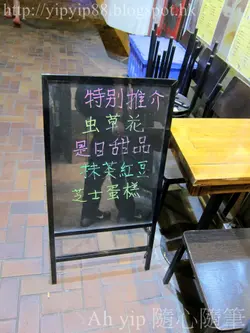 http://yipyip88.blogspot.hk
特别推介
虫草花
是日甜品
抹茶紅豆
芝士蛋糕
Ah yip 隨心隨筆